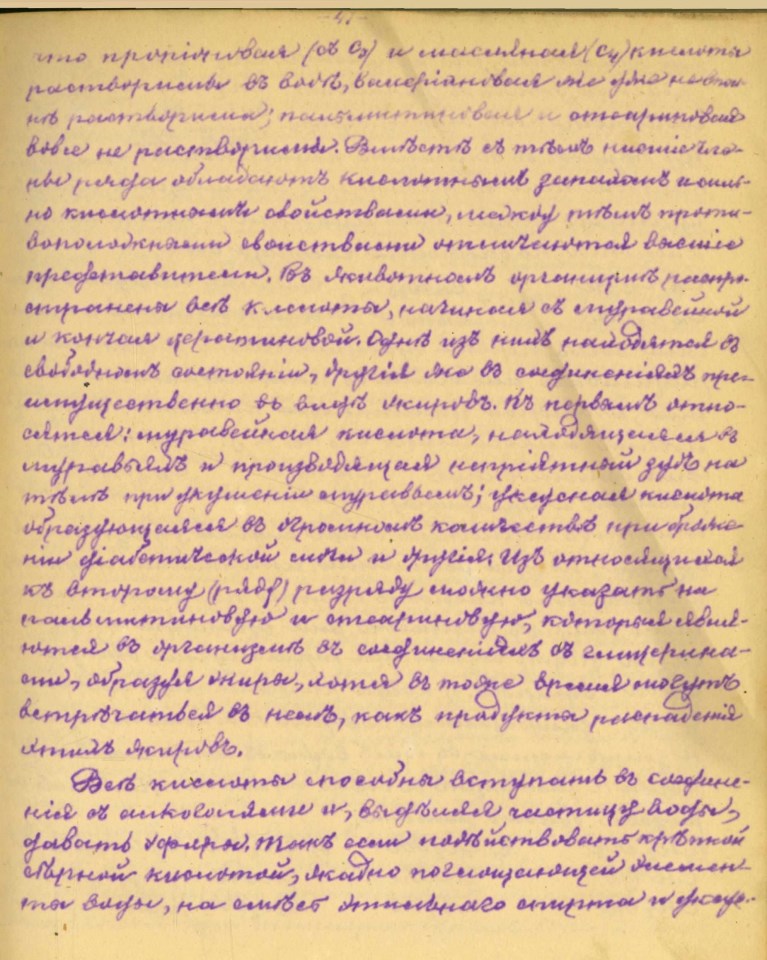 что пропіоновая (съ C₃) и масляная (C₄) кислоты
растворимы въ водѣ, валеріановая же уже не впол-
нѣ растворима; пальмитиновая и стеариновая
вовсе не растворимы. Вмѣстѣ съ тѣмъ низшіе чле-
ны ряда обладаютъ кислотнымъ запахомъ и силь-
но кислотными свойствами, между тѣмъ проти-
воположными свойствами отличаются высшіе
представители. Въ животномъ организмѣ распро-
странены всѣ кислоты, начиная съ муравейной
и кончая церотиновой. Однѣ изъ нихъ находятся въ
свободномъ состояніи, другія же въ соединеніяхъ пре-
имущественно въ видѣ жировъ. Къ первымъ отно-
сятся: муравейная кислота, находящаяся въ
муравьяхъ и производящая непріятный зудъ на
тѣлѣ при укушеніи муравьемъ; уксусная кислота
образующаяся въ огромномъ количествѣ при броже-
ніи діабетической мочи и другія. Изъ относящихся
къ второму (ряду) разряду можно указать на
пальмитиновую и стеариновую, которыя явля-
ются въ организмѣ въ соединеніяхъ съ глицерина-
ми, образуя жиры, хотя въ тоже время могутъ
встрѣчаться въ немъ, какъ продукты распаденія
этихъ жировъ.
Всѣ кислоты способны вступать въ соедине-
нія съ алкоголями и, выдѣляя частицу воды,
давать эфиры. Такъ если подѣйствовать крѣпкой
сѣрной кислотой, жадно поглощающей элемен-
ты воды, на смѣсь этильнаго спирта и уксус-